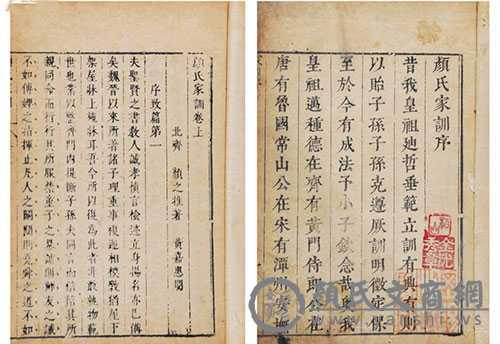 顏氏家訓序
昔我皇祖迪哲垂範立訓有典有則
以貽子孫子孫克遵厥訓明徵定保
至於今有成法予小子欽念哉我
皇祖邁種德在齊有黃門侍郎公在
唐有魯國常山公在宋有潭州安撫
顏氏家訓卷上
北齊 顏之推著 黃嘉惠閱
序致篇第一
夫聖賢之書教人誠孝慎言檢迹立身揚名亦已備
矣魏晉以來所著諸子理重事複遞相模斆猶屋下
架屋牀上施牀耳吾今所以復為此者非敢軌物範
世也業以整齊門內提撕子孫夫同言而信信其所
親同命而行行其所服禁童子之暴謔則師友之誡
不如傅婢之指揮止凡人之鬭鬩則堯舜之道不如
顏氏文商網